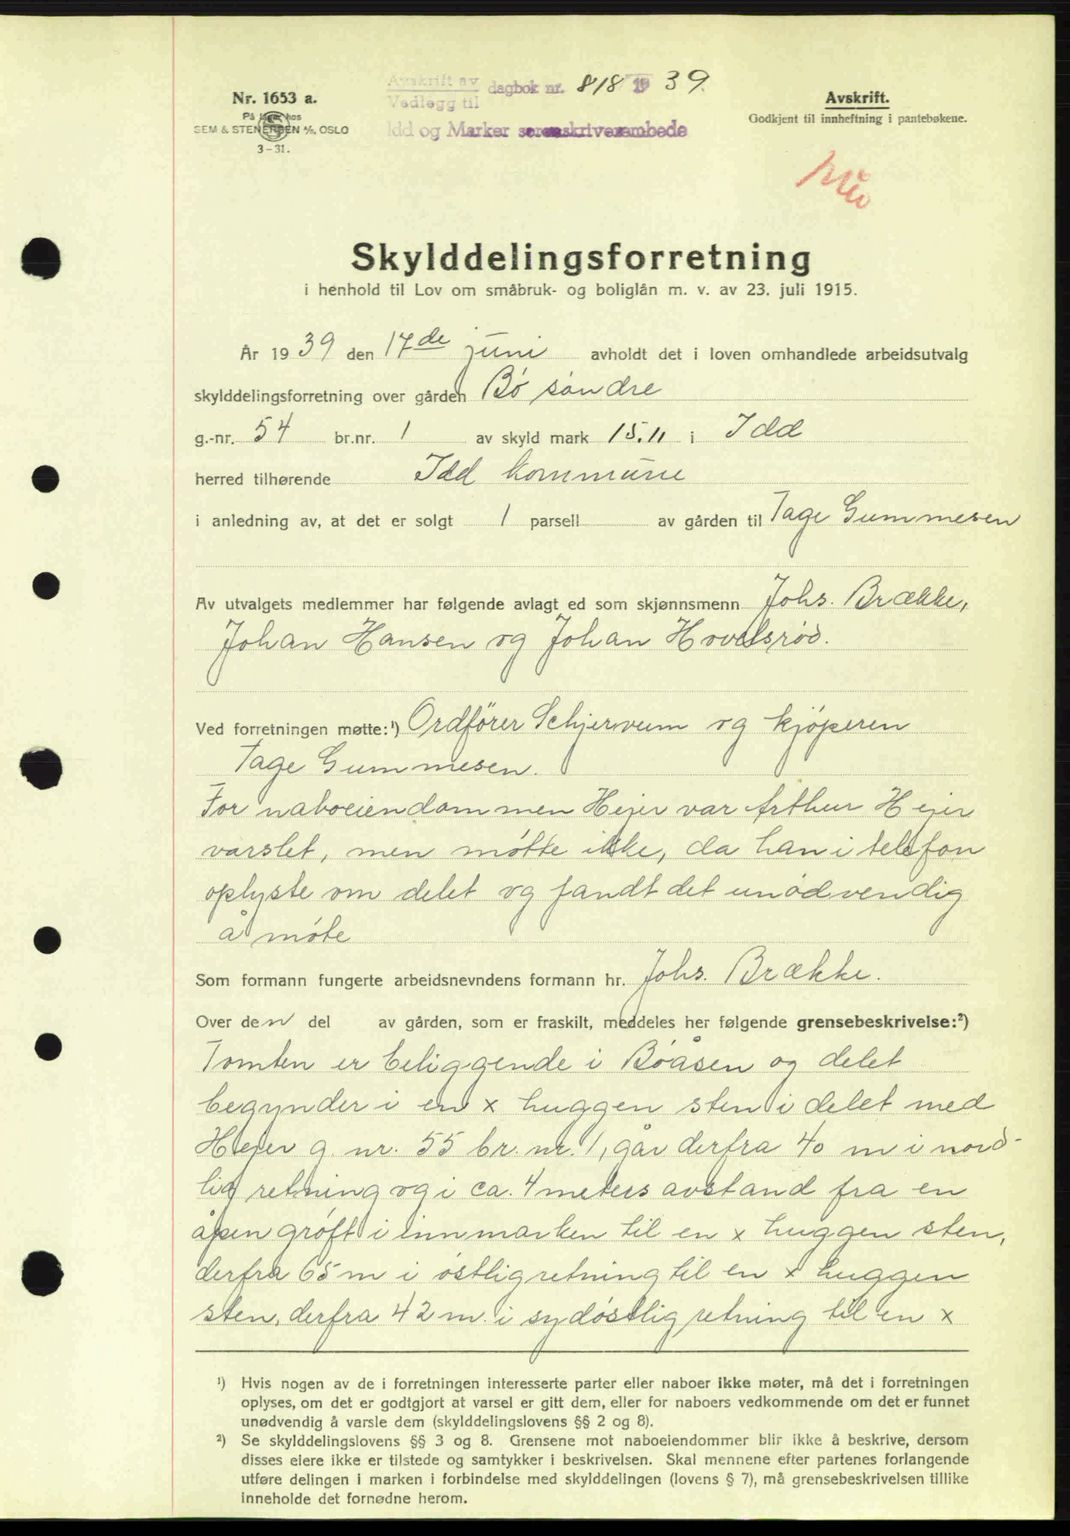 Avskrift av
Vedlegg til
dagbok nr. 818 1939.
Idd og Marker sorenskriverembede
Nr. 1653 a.
På lager hos
SEM & STENERSEN A/S, OSLO
3-31.
Avskrift.
Godkjent til innheftning i pantebøkene.
Skylddelingsforretning
i henhold til Lov om småbruk- og boliglån m. v. av 23. juli 1915.
År 1939 den 17de juni avholdt det i loven omhandlede arbeidsutvalg
skylddelingsforretning over gården Bø søndre
g.-nr. 54 br.nr. 1 av skyld mark 15.11 i Idd
herred tilhørende Idd kommune
i anledning av, at det er solgt 1 parsell av gården til Tage Gummesen
Av utvalgets medlemmer har følgende avlagt ed som skjønnsmenn Johs. Brække,
Johan Hansen og Johan Hovelsrød.
Ved forretningen møtte:¹) Ordfører Schjervum og kjøperen
Tage Gummesen.
For naboeiendommen Hejer var Arthur Hejer
varslet, men møtte ikke, da han i telefon
oplyste om delet og fandt det unødvendig
å møte
Som formann fungerte arbeidsnevndens formann hr. Johs. Brække.
Over den del av gården, som er fraskilt, meddeles her følgende grensebeskrivelse:²)
Tomten er beliggende i Bøåsen og delet
begynder i en x huggen sten i delet med
Hejer g. nr. 55 br. nr. 1, går derfra 40 m i nord-
lig retning og i ca. 4 meters avstand fra en
åpen grøft i innmarken til en x huggen sten,
derfra 65 m i østlig retning til en x huggen
sten, derfra 42 m. i sydøstlig retning til en x
¹) Hvis nogen av de i forretningen interesserte parter eller naboer ikke møter, må det i forretningen
oplyses, om det er godtgjort at varsel er gitt dem, eller for naboers vedkommende om det er funnet
unødvendig å varsle dem (skylddelingslovens §§ 2 og 8).
²) Se skylddelingslovens §§ 3 og 8. Grensene mot naboeiendommer blir ikke å beskrive, dersom
disses eiere ikke er tilstede og samtykker i beskrivelsen. Skal mennene efter partenes forlangende
utføre delingen i marken i forbindelse med skylddelingen (lovens § 7), må grensebeskrivelsen tillike
inneholde det fornødne herom.